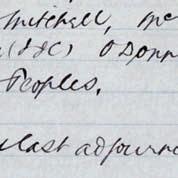 Mitchell, Mc
(J&C) O'Donn
Peoples.
last adjourn